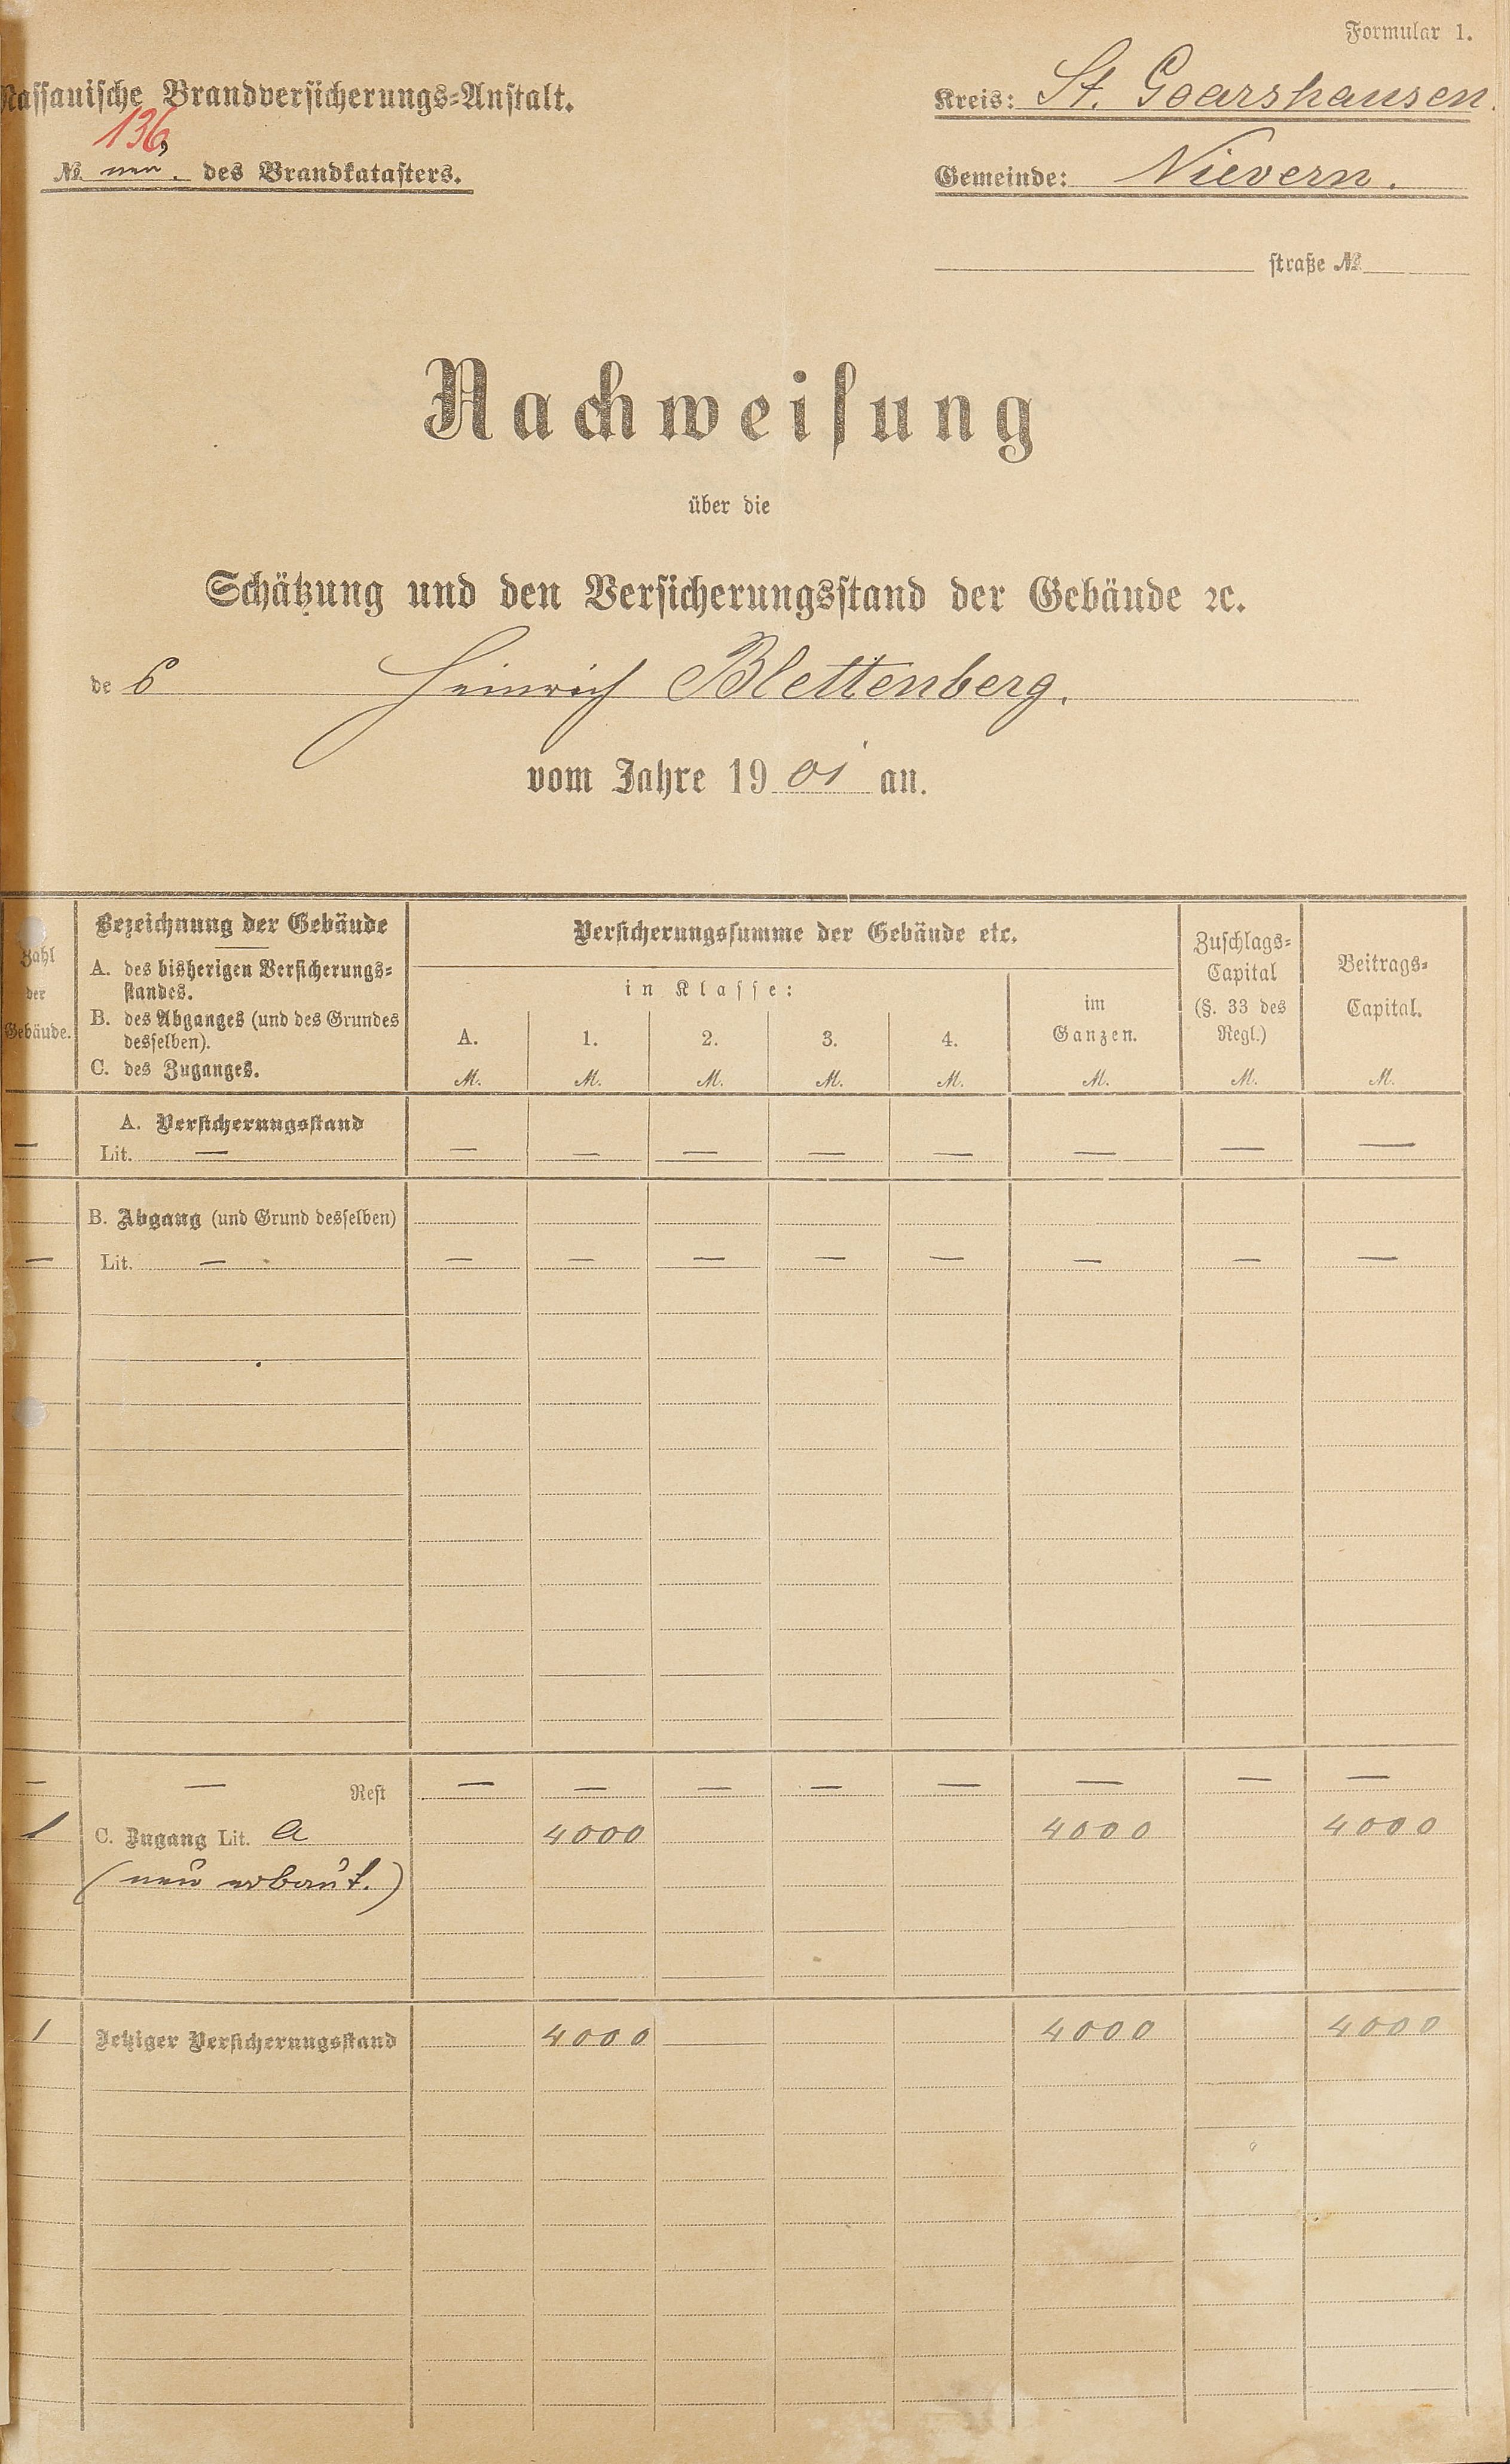 Formular 1.
Nassauische Brandversicherungs-Anstalt.
Kreis: St. Goarshausen.
136
№ neu. des Brandkatasters.
Gemeinde: Nievern.
straße №
Nachweisung
über die
Schätzung und den Versicherungsstand der Gebäude ꝛc.
des Heinrich Blettenberg.
vom Jahre 1901 an.
Zahl der Gebäude.
Bezeichnung der Gebäude
A. des bisherigen Versicherungs-
standes.
B. des Abganges (und des Grundes
desselben).
C. des Zuganges.
Versicherungssumme der Gebäude etc.
in Klasse:
A. 1. 2. 3. 4.
im
Ganzen.
Zuschlags-
Capital
(§. 33 des
Regl.)
Beitrags-
Capital.
M. M. M. M. M. M. M. M.
A. Versicherungsstand
— Lit. — — — — — — — — —
B. Abgang (und Grund desselben)
— Lit. — — — — — — — — —
— — Rest — — — — — — — —
1 C. Zugang Lit. a 4000 4000 4000
(neu erbaut.)
1 Jetziger Versicherungsstand 4000 4000 4000